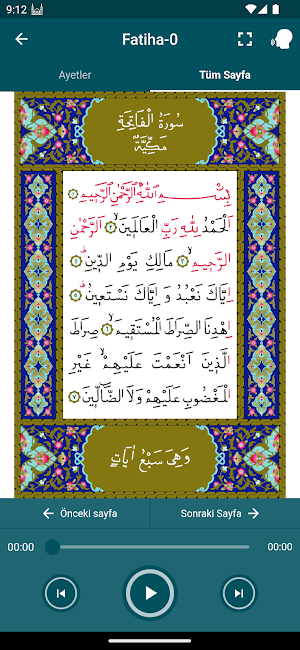 9:12
Fatiha-0
Ayetler
Tüm Sayfa
سُورَةُ الْفَاتِحَةِ
مَكِّيَّةٌ
بِسْمِ اللّٰهِ الرَّحْمٰنِ الرَّحِيمِ
اَلْحَمْدُ لِلّٰهِ رَبِّ الْعَالَمِينَۙ اَلرَّحْمٰنِ
الرَّحِيمِۙ مَالِكِ يَوْمِ الدِّينِۜ
اِيَّاكَ نَعْبُدُ وَ اِيَّاكَ نَسْتَعِينُۜ
اِهْدِنَا الصِّرَاطَ الْمُسْتَقِيمَۙ صِرَاطَ
الَّذِينَ اَنْعَمْتَ عَلَيْهِمْۙ غَيْرِ
الْمَغْضُوبِ عَلَيْهِمْ وَلَا الضَّالِّينَ
وَهِىَ سَبْعُ اٰيَاتٍ
Önceki sayfa
Sonraki Sayfa
00:00
00:00